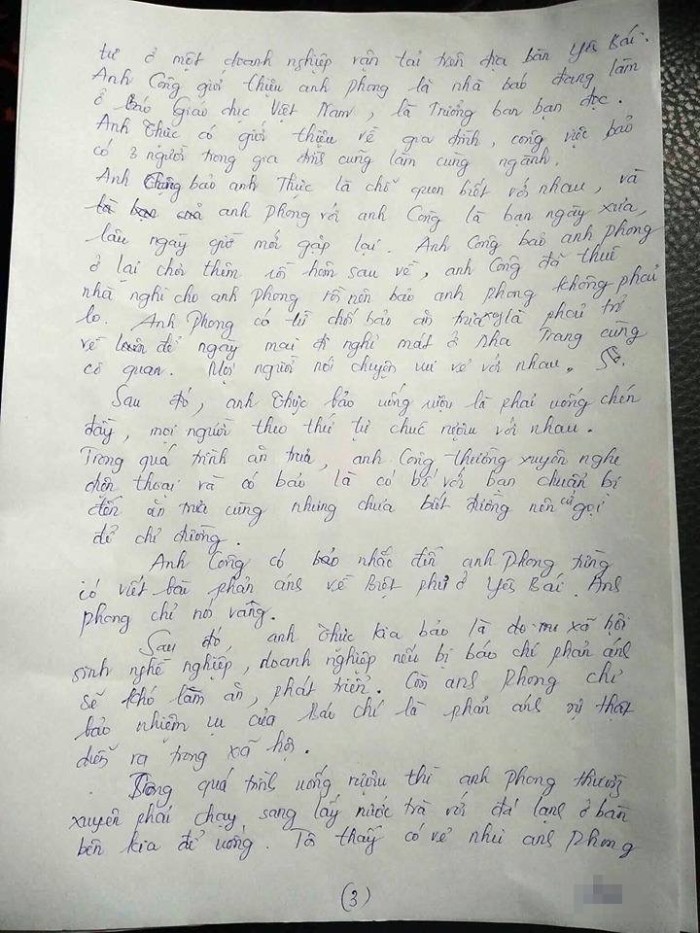 tư ở một doanh nghiệp vận tải trên địa bàn Yên Bái.
Anh Công giới thiệu anh Phong là nhà báo đang làm
ở Báo Giáo dục Việt Nam, là Trưởng ban bạn đọc.
Anh Thức có giới thiệu về gia đình, công việc bảo
có 3 người trong gia đình cũng làm cùng ngành.
Anh Công bảo anh Thức là chỗ quen biết với nhau, và
anh Phong với anh Công là bạn ngày xưa,
lâu ngày giờ mới gặp lại. Anh Công bảo anh Phong
ở lại chơi thêm rồi hôm sau về, anh Công đã thuê
nhà nghỉ cho anh Phong rồi nên bảo anh Phong không phải
lo. Anh Phong có từ chối bảo ăn trưa xong là phải trở
về luôn để ngày mai đi nghỉ mát ở Nha Trang cùng
cơ quan. Mọi người nói chuyện vui vẻ với nhau.
Sau đó, anh Thức bảo uống rượu là phải uống chén
đầy, mọi người theo thứ tự chúc rượu với nhau.
Trong quá trình ăn trưa, anh Công thường xuyên nghe
điện thoại và có bảo là có bố với bạn chuẩn bị
đến ăn trưa cùng nhưng chưa biết đường nên cứ gọi
để chỉ đường.
Anh Công có nhắc đến anh Phong từng
có viết bài phản ánh về biệt phủ ở Yên Bái. Anh
Phong chỉ nói vâng.
Sau đó, anh Thức kia bảo là do xã hội
sinh nghề nghiệp, doanh nghiệp nếu bị báo chí phản ánh
sẽ khó làm ăn, phát triển. Còn anh Phong chỉ
bảo nhiệm vụ của báo chí là phản ánh sự thật
diễn ra trong xã hội.
Trong quá trình uống rượu thì anh Phong thường
xuyên phải chạy sang lấy nước trà với đá lạnh ở bàn
bên kia để uống. Tôi thấy có vẻ như anh Phong
(3)